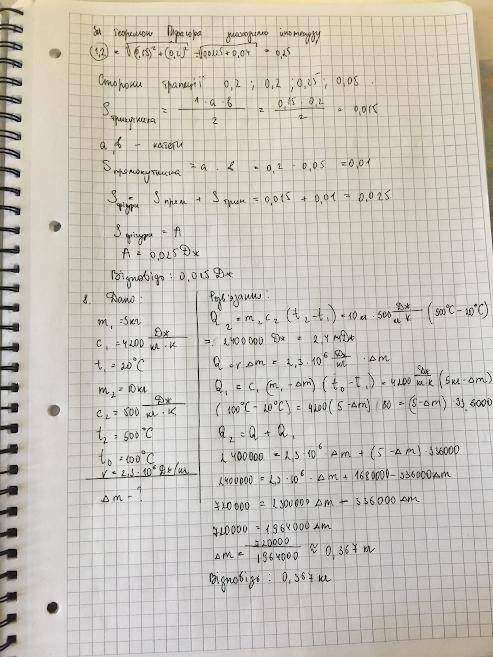 За теоремою Піфагора знаходимо гіпотенузу
(1,2) = √(0,15)² + (0,2)² = √0,0225 + 0,04 = 0,25
Сторони трапеції 0,2 ; 0,2 ; 0,25 ; 0,05 .
S трикутника = 1 · a · b / 2 = 0,15 · 0,2 / 2 = 0,015
a, b - катети
S прямокутника = a · b = 0,2 · 0,05 = 0,01
S фігури S прям + S трик = 0,015 + 0,01 = 0,025
S фігури = A
A = 0,025 Дж
Відповідь : 0,025 Дж
8. Дано :
m₁ = 5кг
c₁ = 4200 Дж / кг · К
t₁ = 20°C
m₂ = 10кг
c₂ = 500 Дж / кг · К
t₂ = 500°C
t₀ = 100°C
r = 2,3 · 10⁶ Дж/кг
Δm - ?
Розв'язання :
Q₂ = m₂ c₂ (t₂ - t₁) = 10кг · 500 Дж / кг · К (500°C - 20°C)
= 2400000 Дж = 2,4 мДж
Q = r Δm = 2,3 · 10⁶ Дж / кг · Δm
Q₁ = c₁ (m₁ - Δm) (t₀ - t₁) = 4200 Дж / кг · К (5кг - Δm)
(100°C - 20°C) = 4200 (5 - Δm) (80 = (5 - Δm) 336000
Q₂ = Q + Q₁
2400000 = 2,3 · 10⁶ · Δm + (5 - Δm) · 336000
2400000 = 2,3 · 10⁶ · Δm + 1680000 - 336000Δm
720000 = 2300000 Δm - 336000 Δm
720000 = 1964000 Δm
Δm = 720000 / 1964000 ≈ 0,367 кг
Відповідь : 0,367 кг